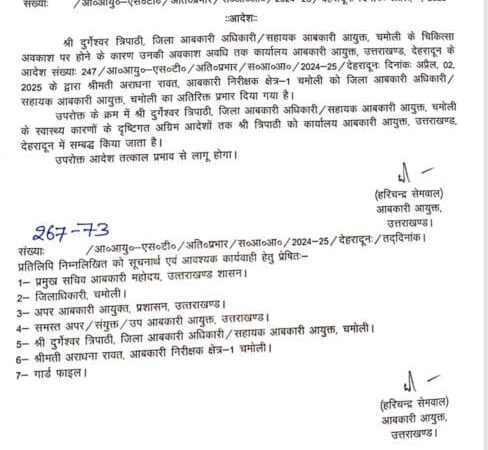 संख्याः /आ०आयु०-एस०टी०/अति०प्रभार/स०आ०आ०/2024-25/देहरादूनः
::आदेशः
श्री दुर्गेश्वर त्रिपाठी, जिला आबकारी अधिकारी/सहायक आबकारी आयुक्त, चमोली के चिकित्सा
अवकाश पर होने के कारण उनकी अवकाश अवधि तक कार्यालय आबकारी आयुक्त, उत्तराखण्ड, देहरादून के
आदेश संख्याः 247/आ०आयु०-एस०टी०/अति०प्रभार/स०आ०आ०/2024-25/देहरादूनः दिनांकः अप्रैल, 02,
2025 के द्वारा श्रीमती अराधना रावत, आबकारी निरीक्षक क्षेत्र-1 चमोली को जिला आबकारी अधिकारी/
सहायक आबकारी आयुक्त, चमोली का अतिरिक्त प्रभार दिया गया है।
उपरोक्त के क्रम में श्री दुर्गेश्वर त्रिपाठी, जिला आबकारी अधिकारी/सहायक आबकारी आयुक्त, चमोली
के स्वास्थ्य कारणों के दृष्टिगत अग्रिम आदेशों तक श्री त्रिपाठी को कार्यालय आबकारी आयुक्त, उत्तराखण्ड,
देहरादून में सम्बद्ध किया जाता है।
उपरोक्त आदेश तत्काल प्रभाव से लागू होगा।
(हरिचन्द्र सेमवाल)
आबकारी आयुक्त,
उत्तराखण्ड।
267-73
संख्याः /आ०आयु०-एस०टी०/अति०प्रभार/स०आ०आ०/2024-25/देहरादूनः/तद्दिनांक।
प्रतिलिपि निम्नलिखित को सूचनार्थ एवं आवश्यक कार्यवाही हेतु प्रेषितः-
1- प्रमुख सचिव आबकारी महोदय, उत्तराखण्ड शासन।
2- जिलाधिकारी, चमोली।
3- अपर आबकारी आयुक्त, प्रशासन, उत्तराखण्ड।
4- समस्त अपर/संयुक्त/उप आबकारी आयुक्त, उत्तराखण्ड।
5- श्री दुर्गेश्वर त्रिपाठी, जिला आबकारी अधिकारी/सहायक आबकारी आयुक्त, चमोली।
6- श्रीमती अराधना रावत, आबकारी निरीक्षक क्षेत्र-1 चमोली।
7- गार्ड फाइल।
(हरिचन्द्र सेमवाल)
आबकारी आयुक्त,
उत्तराखण्ड।